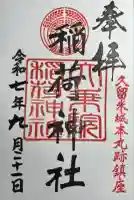 奉拝
久留米城本丸跡鎮座
稲荷神社
令和七年九月二十一日